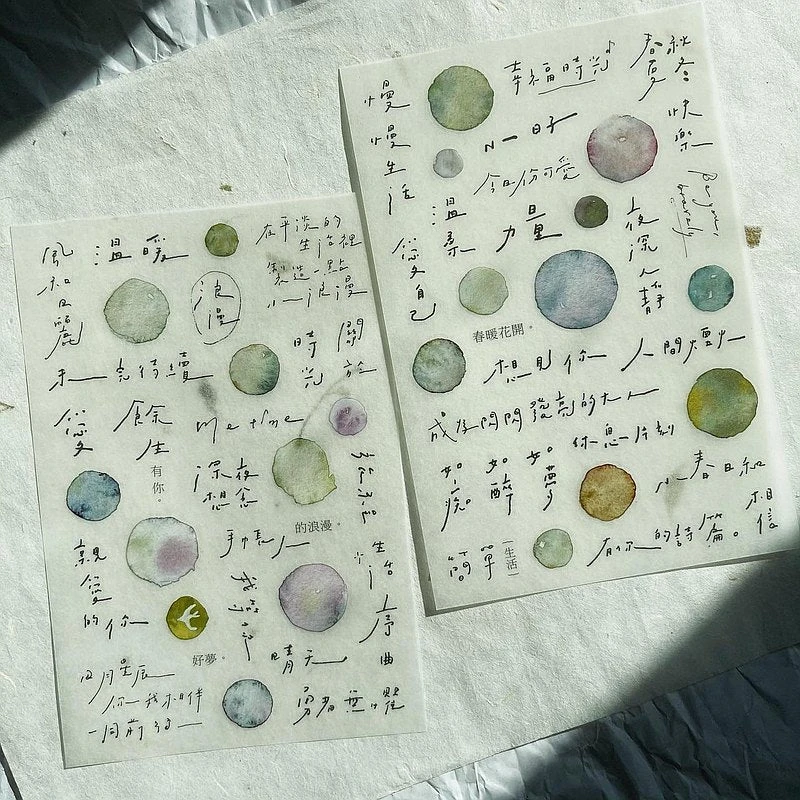 風和日麗
溫暖
在平淡的
生活裡
製造一點
小浪漫
浪漫
未完待續
時光
關於
愛
餘生
me time
有你。
深夜
想念
的浪漫。
手帳人
親愛的你
生活序曲
好夢。
晴天
日月星辰
你我相伴
一同前行
勇者無懼
慢慢生活
幸福時光
春夏秋冬
快樂
Be you,
bravely
小日子
今日份可愛
溫柔
力量
夜深人靜
愛自己
春暖花開。
想見你
人間煙火
成為閃閃發亮的大人
休息一片刻
如一
如醉
如夢
小春日和
相信
簡單
生活
有你的詩篇。